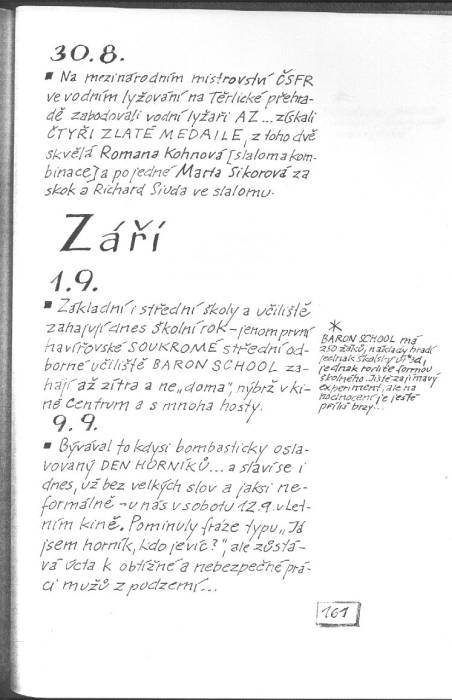 30.8.
▪ Na mezinárodním mistrovství ČSFR
ve vodním lyžování na Těrlické přehra-
dě zabodovali vodní lyžaři AZ... získali
ČTYŘI ZLATÉ MEDAILE, z toho dvě
skvělá Romana Kohnová [slalom a kom-
binace] a po jedné Marta Sikorová za
skok a Richard Siuda ve slalomu.
Září
1.9.
▪ Základní i střední školy a učiliště
zahajují dnes školní rok - jenom první
havířovské SOUKROMÉ střední od-
borné učiliště BARON SCHOOL za-
hájí až zítra a ne „doma", nýbrž v ki-
ně Centrum a s mnoha hosty.
*
BARON SCHOOL má
250 žáků, náklady hradí
jednak školský úřad,
jednak rodiče formou
školného. Jistě zajímavý
experiment, ale na
hodnocení je ještě
příliš brzy...
9.9.
▪ Býval to kdysi bombasticky osla-
vovaný DEN HORNÍKŮ... a slaví se i
dnes, už bez velkých slov a jaksi ne-
formálně - u nás v sobotu 12.9. v Let-
ním kině. Pominuly fráze typu „Já
jsem horník, kdo je víc?", ale zůstá-
vá úcta k obtížné a nebezpečné prá-
ci mužů z podzemí...
161